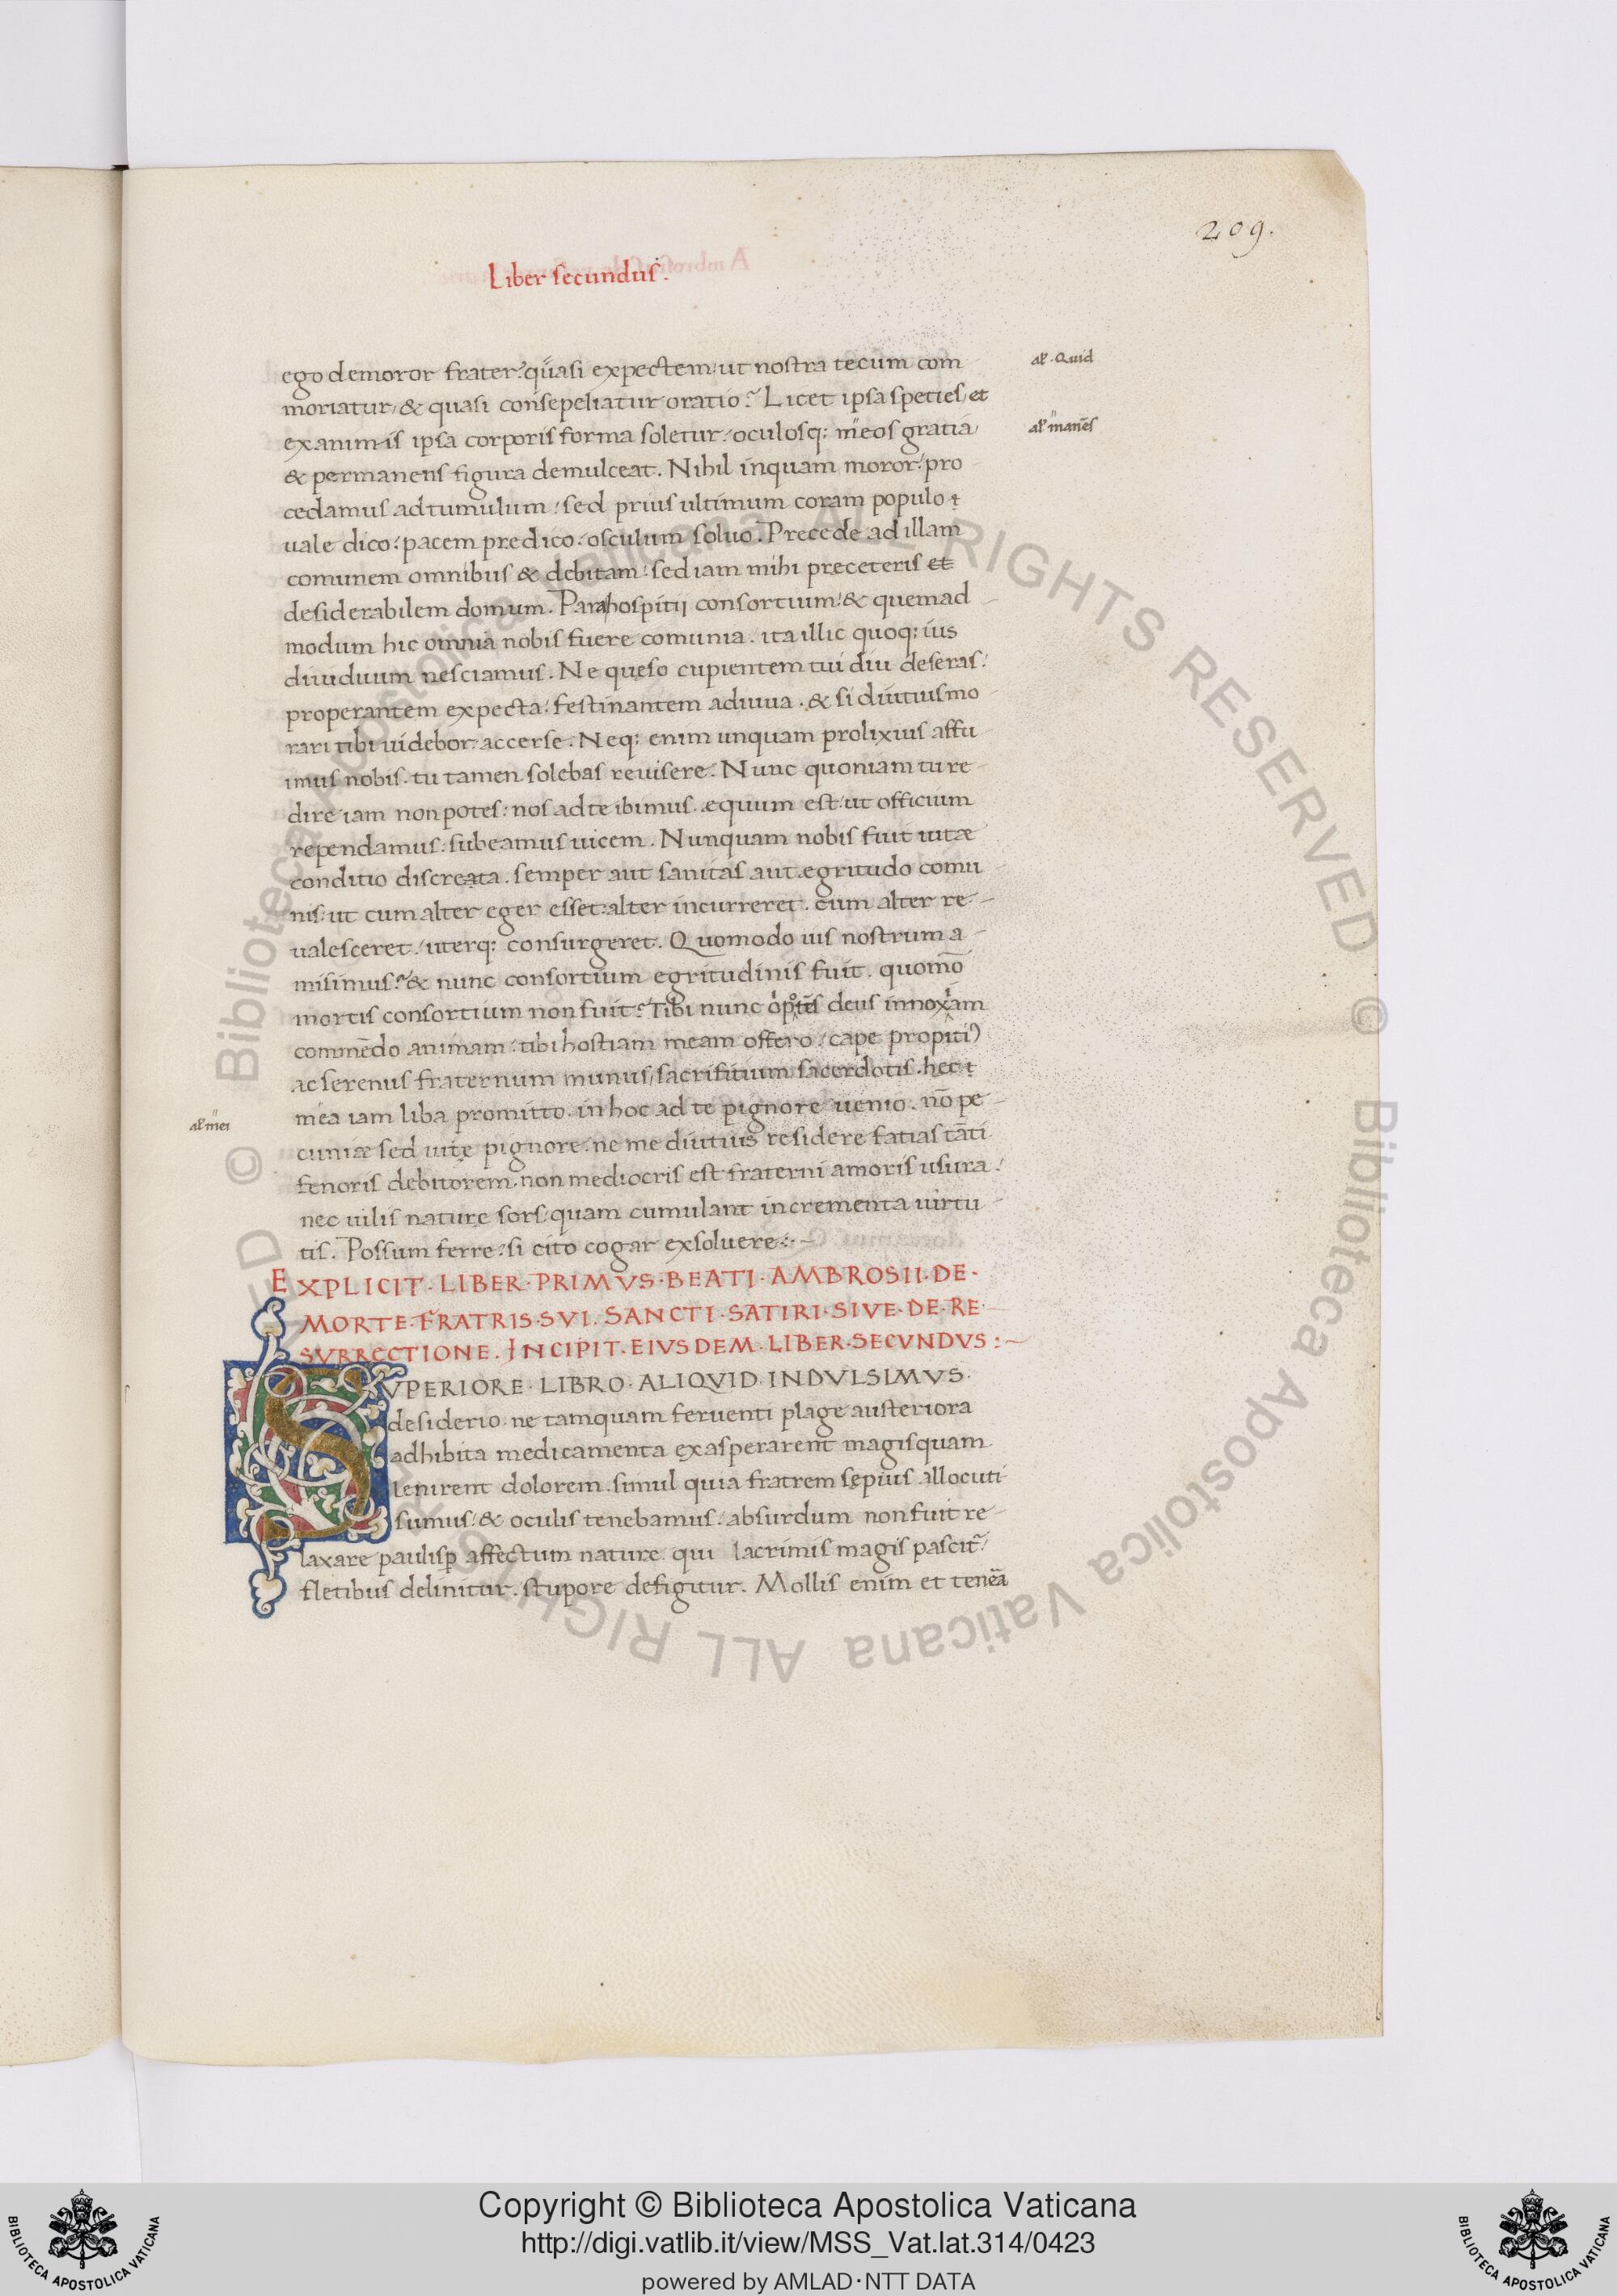 209.
Liber secundus.
ego demoror frater? quasi expectem ut nostra tecum com
al. Quid
moriatur, & quasi consepeliatur oratio? Licet ipsa species, et
exanimis ipsa corporis forma soletur: oculosq; meos gratia
al manēs
& permanens figura demulceat. Nihil inquam moror: pro
cedamus ad tumulum: sed prius ultimum coram populo
uale dico: pacem predico: osculum soluo. Precede ad illam
comunem omnibus & debitam: sed iam mihi preceteris et
desiderabilem domum. Para hospitij consortium: & quemad
modum hic omnia nobis fuere comunia. ita illic quoq; ius
diuiduum nesciamus. Ne queso cupientem tui diu deseras:
properantem expecta: festinantem adiuua. & si diutius mo
rari tibi uidebor accerse. Neq; enim unquam prolixius affu
imus nobis. tu tamen solebas reuisere. Nunc quoniam tu re
dire iam non potes: nos ad te ibimus. equum est ut officium
rependamus: subeamus uicem. Nunquam nobis fuit uitæ
conditio discreata. semper aut sanitas aut egritudo comu
nis: ut cum alter eger esset: alter incurreret. cum alter re
ualesceret: uterq; consurgeret. Quomodo ius nostrum a
misimus? & nunc consortium egritudinis fuit. quomō
mortis consortium non fuit? Tibi nunc deus innoxiam
commēdo animam: tibi hostiam meam offero: cape propiti
ac serenus fraternum munus, sacrifitium sacerdotis. hec
mea iam liba promitto. in hoc ad te pignore uenio. nō pe
al mei
cuniæ sed uitę pignore. ne me diutius residere fatias tāti
fenoris debitorem. non mediocris est fraterni amoris usura:
nec uilis nature sors, quam cumulant incrementa uirtu
tis. Possum ferre: si cito cogar exsoluere:~
EXPLICIT. LIBER. PRIMVS. BEATI. AMBROSII. DE.
MORTE. FRATRIS. SVI. SANCTI. SATIRI. SIVE. DE. RE
SVRRECTIONE. INCIPIT. EIVSDEM. LIBER. SECVNDVS:~
SVPERIORE. LIBRO. ALIQVID. INDVLSIMVS.
desiderio. ne tamquam feruenti plage austeriora
adhibita medicamenta exasperarent magis quam
lenirent dolorem. simul quia fratrem sępius allocuti
sumus: & oculis tenebamus: absurdum non fuit re
laxare paulisp affectum nature. qui lacrimis magis pascit̃:
fletibus delinitur. stupore defigitur. Mollis enim et tenēa
© Biblioteca Apostolica Vaticana ALL RIGHTS RESERVED © Biblioteca Apostolica Vaticana ALL RIGHTS RESERVED
Copyright © Biblioteca Apostolica Vaticana
http://digi.vatlib.it/view/MSS_Vat.lat.314/0423
powered by AMLAD·NTT DATA
BIBLIOTECA APOSTOLICA VATICANA
BIBLIOTECA APOSTOLICA VATICANA